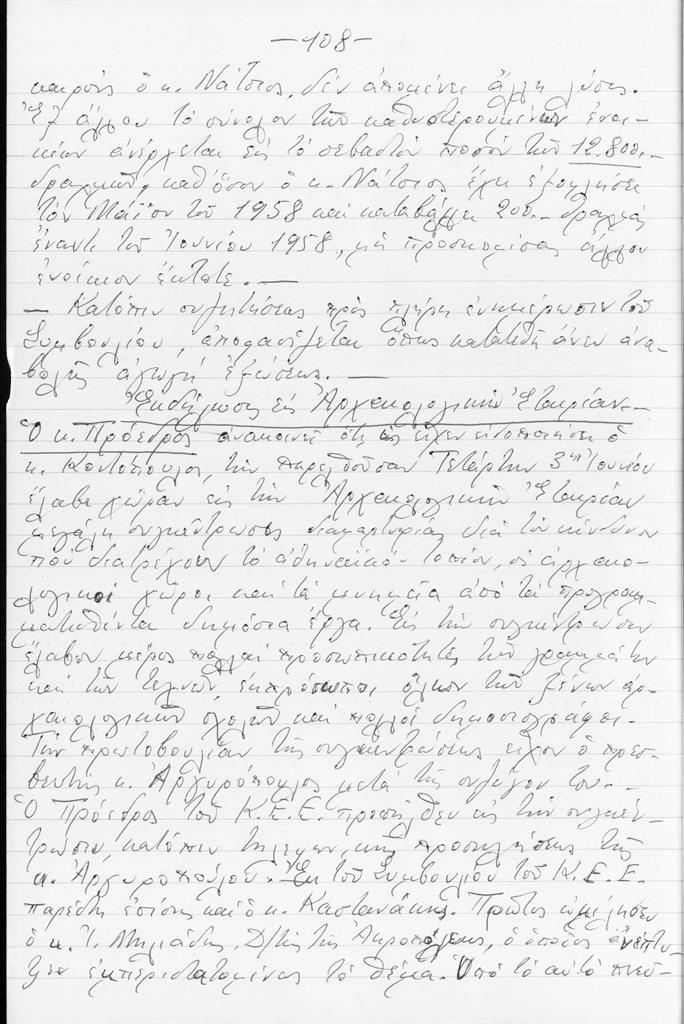 —108—
καιρούς ὁ κ. Νάτσιος, δέν ἀπομένει ἄλλη λύσις.
Ἐξ ἄλλου τό σύνολον τῶν καθυστερουμένων ἐνοι-
κίων ἀνέρχεται εἰς τό σεβαστόν ποσόν τῶν 12.800.-
δραχμῶν, καθ' ὅσον ὁ κ. Νάτσιος ἔχει ἐξοφλήσει
τόν Μάϊον τοῦ 1958 καί καταβάλλει 200.- δραχμάς
ἔναντι τοῦ Ἰουνίου 1958, μή προσκομίσας ἄλλον
ἐνοίκιον ἔκτοτε. —
— Κατόπιν συζητήσεως πρός πλήρη ἐνημέρωσιν τοῦ
Συμβουλίου, ἀποφασίζεται ὅπως κατατεθῇ ἄνευ ἀνα-
βολῆς ἀγωγή ἐξώσεως. —
Ἐκδήλωσις εἰς Ἀρχαιολογικήν Ἑταιρίαν.-
Ὁ κ. Πρόεδρος ἀνακοινεῖ ὅτι ὡς εἶχεν εἰδοποιήσει ὁ
κ. Κοντόπουλος, τήν παρελθοῦσαν Τετάρτην 3ην Ἰουνίου
ἔλαβε χώραν εἰς τήν Ἀρχαιολογικήν Ἑταιρίαν
μεγάλη συγκέντρωσις διαμαρτυρίας διά τόν κίνδυνον
πού διατρέχουν τό ἀθηναϊκό τοπίον, οἱ ἀρχαιο-
λογικοί χῶροι καί τά μνημεῖα ἀπό τά προγραμ-
ματισθέντα δημόσια ἔργα. Εἰς τήν συγκέντρωσιν
ἔλαβον μέρος πολλαί προσωπικότητες τῶν γραμμάτων
καί τῶν τεχνῶν, ἐκπρόσωποι ὅλων τῶν ξένων ἀρ-
χαιολογικῶν σχολῶν καί πολλοί δημοσιογράφοι.
Τήν πρωτοβουλίαν τῆς συγκεντρώσεως εἶχον ὁ πρεσ-
βευτής κ. Ἀργυρόπουλος μετά τῆς συζύγου του.-
Ὁ Πρόεδρος τοῦ Κ.Ε.Ε. προσῆλθεν εἰς τήν συγκέν-
τρωσιν, κατόπιν τηλεφωνικῆς προσκλήσεως τῆς
κ. Ἀργυροπούλου. Ἐκ τοῦ Συμβουλίου τοῦ Κ.Ε.Ε.
παρέστη ἐπίσης καί ὁ κ. Καστανάκης. Πρῶτος ὡμίλησεν
ὁ κ. Ἰ. Μηλιάδης, Δ/τής τῆς Ἀκροπόλεως, ὁ ὁποῖος ἀνέπτυ-
ξεν ἐμπεριστατωμένως τό θέμα. Ὑπό τό αὐτό πνεῦ-